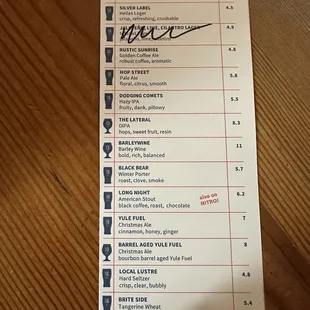 SILVER LABEL
Helles Lager
4.5
crisp, refreshing, crushable
LIME, CILANTRO LAGER
RUSTIC SUNRISE
4.8
Golden Coffee Ale
robust coffee, aromatic
HOP STREET
5.8
Pale Ale
floral, citrus, smooth
DODGING COMETS
5.5
Hazy IPA
fruity, dank, pillowy
THE LATERAL
8.3
DIPA
hops, sweet fruit, resin
BARLEYWINE
11
Barley Wine
bold, rich, balanced
BLACK BEAR
5.7
Winter Porter
roast, clove, smoke
LONG NIGHT
6.2
American Stout
also on
NITRO!
black coffee, roast, chocolate
YULE FUEL
7
Christmas Ale
cinnamon, honey, ginger
BARREL AGED YULE FUEL
8
Christmas Ale
bourbon barrel aged Yule Fuel
LOCAL LUSTRE
4.8
Hard Seltzer
crisp, clear, bubbly
BRITE SIDE
5.4
Tangerine Wheat